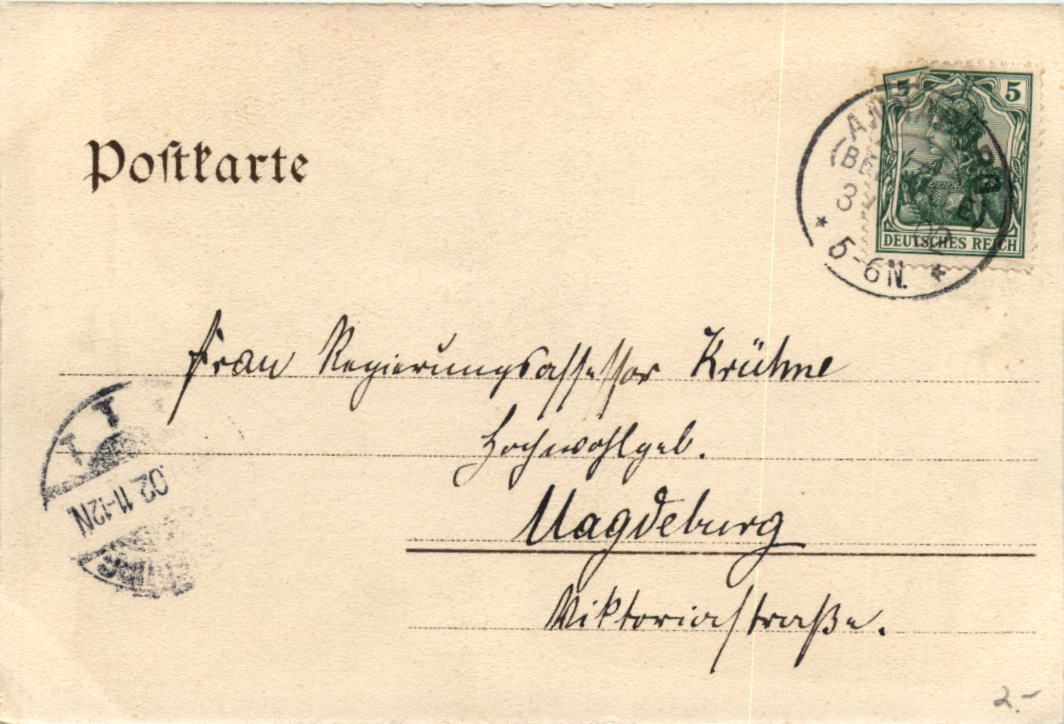 Poſtkarte
5 5
DEUTSCHES REICH
5-6N.
Frau Regierungsassessor Krühne
Hochwohlgeb.
Magdeburg
Viktoriastraße.
02. 11-12N.
2.-